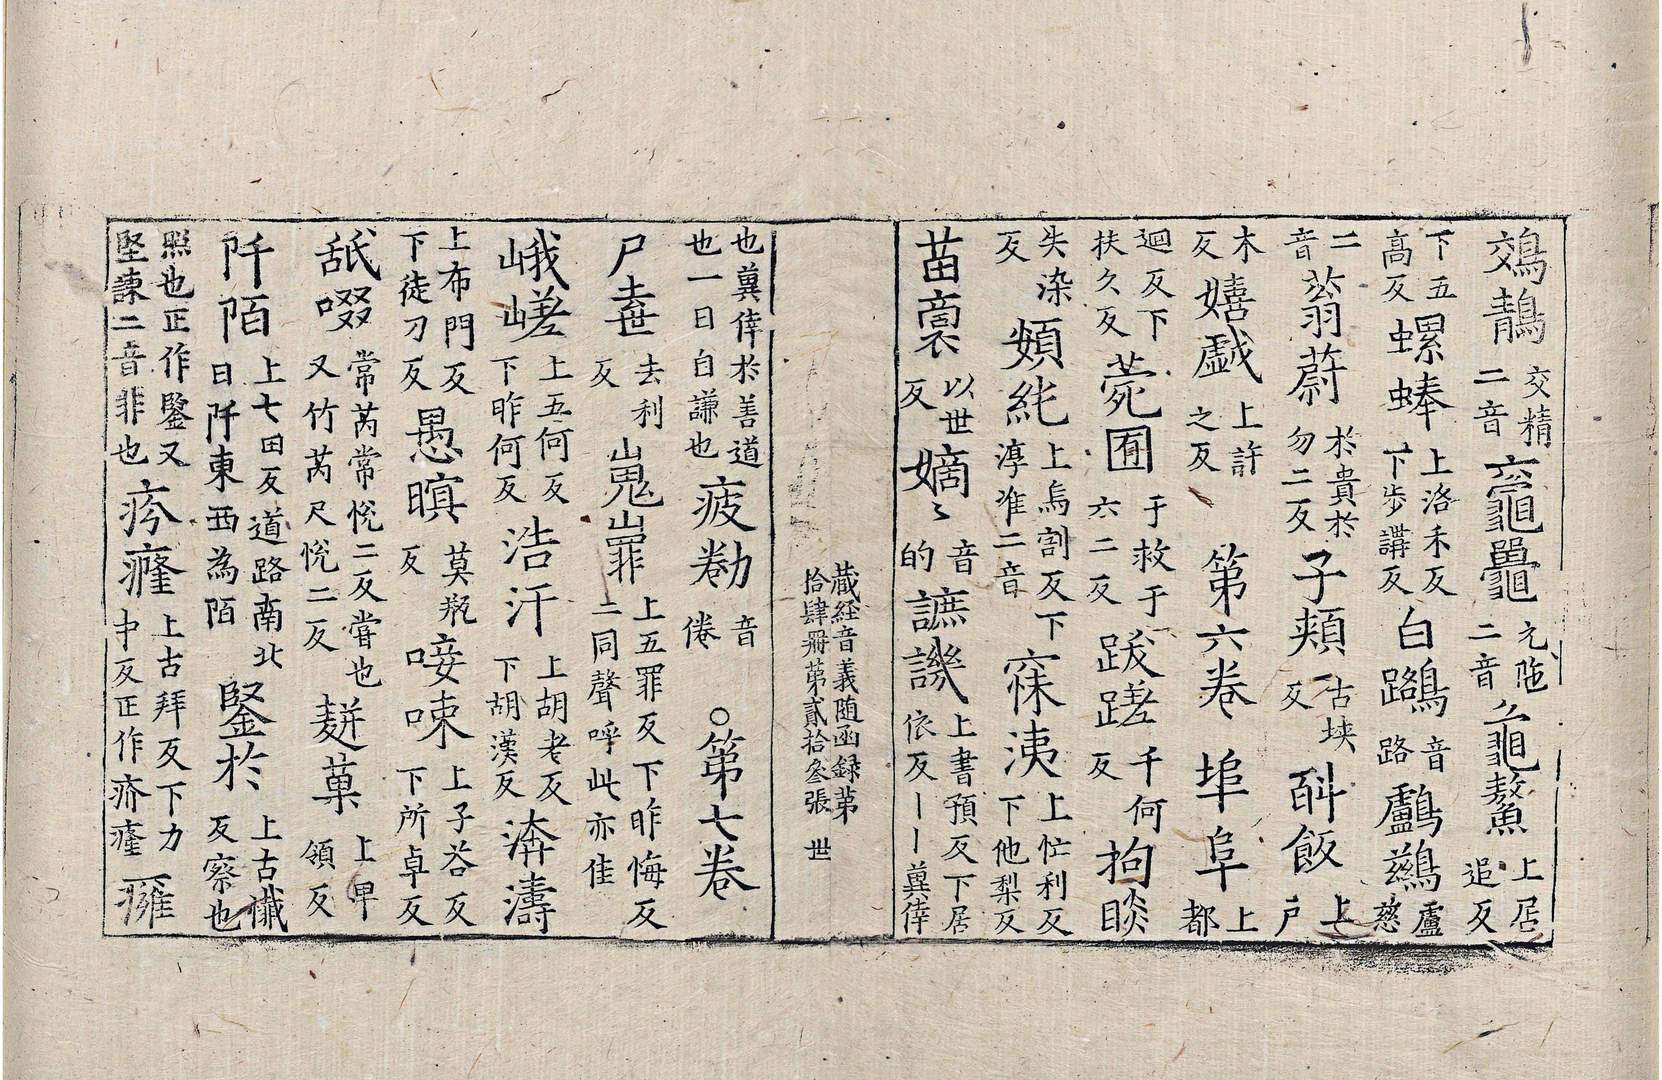 鵁鶄交精二音黿鼉元陁二音龜鰲上居追反
下五高反螺蜯上洛禾反下步講反白鷺音路鸕鷀盧慈
二音蓊蔚於貴於勿二反子頰古埉反酙飯上戶
木反嬉戲上許之反第六卷埠阜上都
迴反下扶久反菀囿于救于六二反跋蹉千何反拘睒
失染反頞純上烏割反下淳准二音寐洟上忙利反下他梨反
苗裔以世反嫡〻音的謶譏上書預反下居依反丨丨冀倖
藏經音義随函録第拾肆冊第貳拾叄張 世
也冀倖於善道也一曰自謙也疲勌音倦○第七卷
尸𠱷去利反嵬嶵上五罪反下昨悔反二同聲呼此亦佳
峨嵯上五何反下昨何反浩汗上胡老反下胡漢反濤濤
上布門反下徒刀反愚瞑莫瓶反唼㖑上子荅反下所卓反
舐啜常芮常恱二反甞也又竹芮尺恱二反麨菓上卑領反
阡陌上七田反道路南北曰阡東西為陌鋻於上古懺反察也
照也正作鑒又堅諫二音非也疥㿈上古拜反下力中反正作疥癃癰